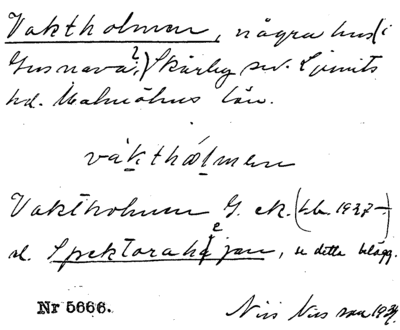 Vaktholmen, några hus (i
Gusnava?,) Skårby sn. Ljunits
hd. Malmöhus län.
våkthålmen
Vaktholmen G. ek. (kbr. 1937–
el. Spektorahejan, se detta belägg.
Nr 5666. Nils Nilsson 1937.